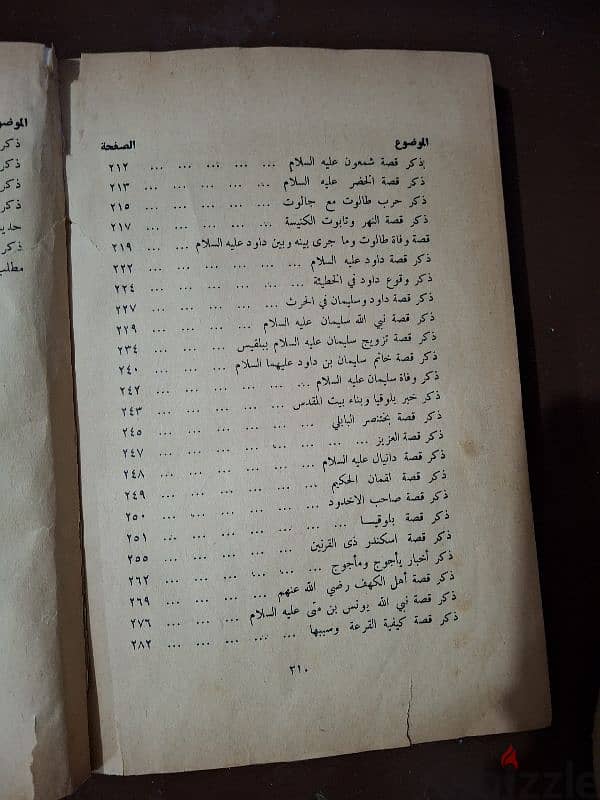 الموضوع الصفحة
يذكر قصة شمعون عليه السلام ... ... ... ... ... ٢١٢
ذكر قصة الخضر عليه السلام ... ... ... ... ... ٢١٣
ذكر حرب طالوت مع جالوت ... ... ... ... ... ٢١٥
ذكر قصة النهر وتابوت الكنيسة ... ... ... ... ... ٢١٧
قصة وفاة طالوت وما جرى بينه وبين داود عليه السلام ... ... ٢١٩
ذكر قصة داود عليه السلام ... ... ... ... ... ٢٢٢
ذكر وقوع داود في الخطيئة ... ... ... ... ... ٢٢٤
ذكر قصة داود وسليمان في الحرث ... ... ... ... ... ٢٢٧
ذكر قصة نبي الله سليمان عليه السلام ... ... ... ... ٢٢٩
ذكر قصة تزويج سليمان عليه السلام ببلقيس ... ... ... ٢٣٤
ذكر قصة خاتم سليمان بن داود عليهما السلام ... ... ... ٢٤٠
ذكر وفاة سليمان عليه السلام ... ... ... ... ... ٢٤٢
ذكر خبر بلوقيا وبناء بيت المقدس ... ... ... ... ٢٤٣
ذكر قصة بختنصر البابلي ... ... ... ... ... ٢٤٥
ذكر قصة العزيز ... ... ... ... ... ... ٢٤٧
ذكر قصة دانيال عليه السلام ... ... ... ... ... ٢٤٨
ذكر قصة لقمان الحكيم ... ... ... ... ... ٢٤٩
ذكر قصة صاحب الاخدود ... ... ... ... ... ٢٥٠
ذكر قصة بلوقيسا ... ... ... ... ... ... ٢٥١
ذكر قصة اسكندر ذى القرنين ... ... ... ... ... ٢٥٥
ذكر أخبار يأجوج ومأجوج ... ... ... ... ... ٢٦٢
ذكر قصة أهل الكهف رضي الله عنهم ... ... ... ... ٢٦٩
ذكر قصة نبي الله يونس بن متى عليه السلام ... ... ... ٢٧٦
ذكر قصة كيفية القرعة وسببها ... ... ... ... ... ٢٨٢
٣١٠
ذكر
ذكر
ذكر
ذكر
ذكر
مطلب